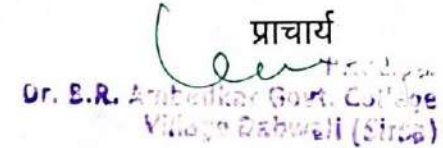 प्राचार्य
Dr. B.R. Ambedkar Govt. College
Village Dabwali (Sirsa)